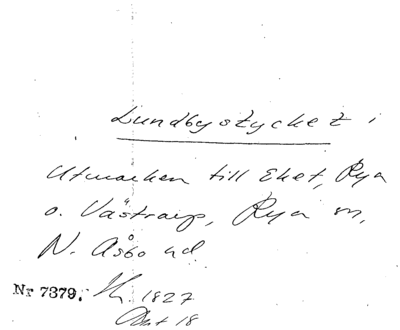 Lundbystycket i
Utmarken till Eket, Rya
o. Västrarp, Rya sn,
N. Åsbo hd
Nr 7379. 1827
Akt 18